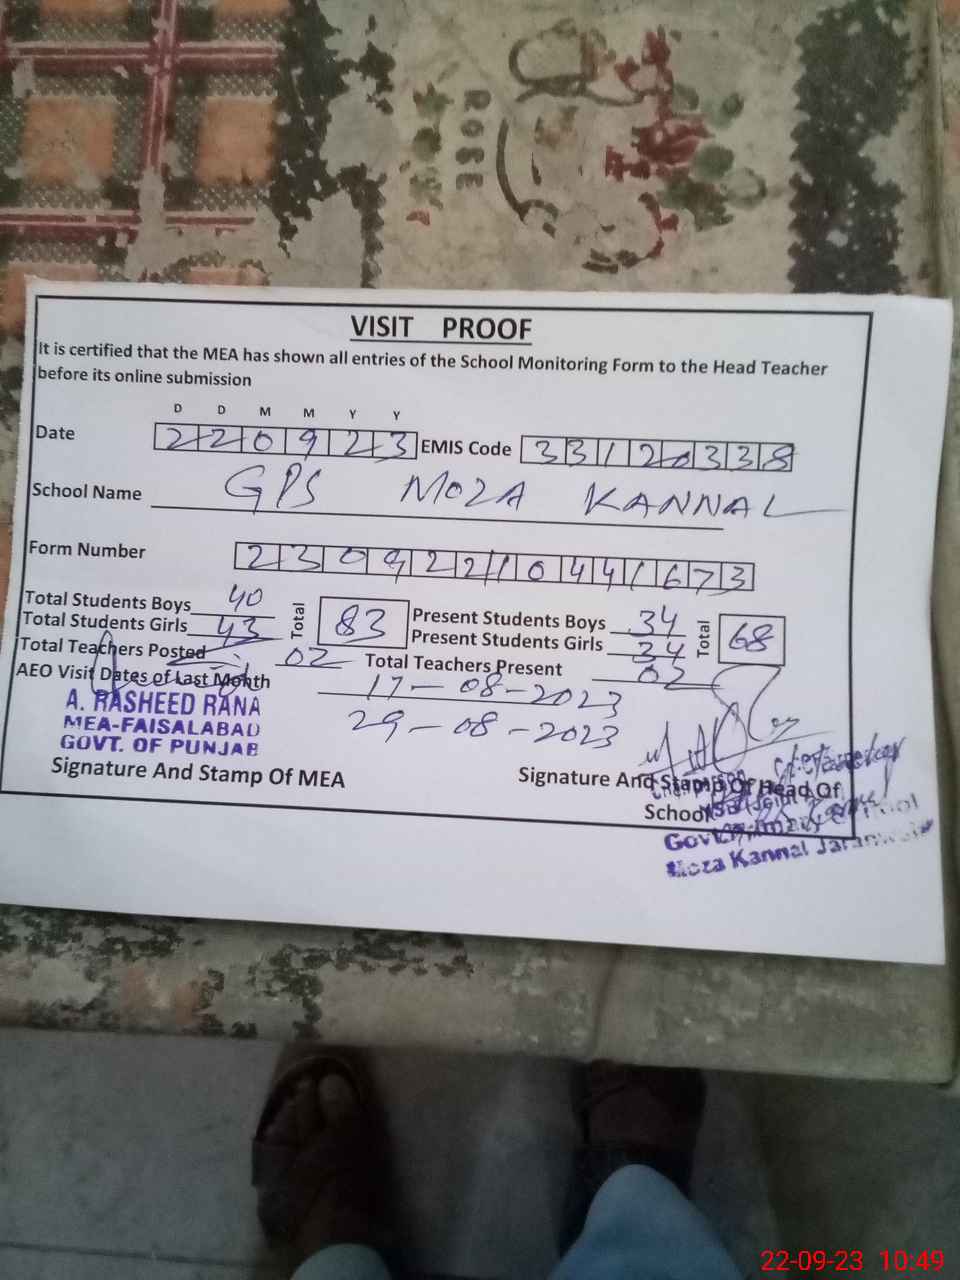 ROSE
VISIT PROOF
It is certified that the MEA has shown all entries of the School Monitoring Form to the Head Teacher
before its online submission
D D M M Y Y
Date 220923 EMIS Code 33120338
School Name GPS MOZA KANNAL
Form Number 230922104416 73
Total Students Boys 40 Total 83 Present Students Boys 34 Total 68
Total Students Girls 43 Present Students Girls 34
Total Teachers Posted 02 Total Teachers Present 02
AEO Visit Dates of Last Month 17-08-2023
29-08-2023
A. RASHEED RANA
MEA-FAISALABAD
GOVT. OF PUNJAB
Signature And Stamp Of MEA
Signature And Stamp Of Head Of
School
Govt. Primary School
Moza Kannal Jaranwala
22-09-23 10:49